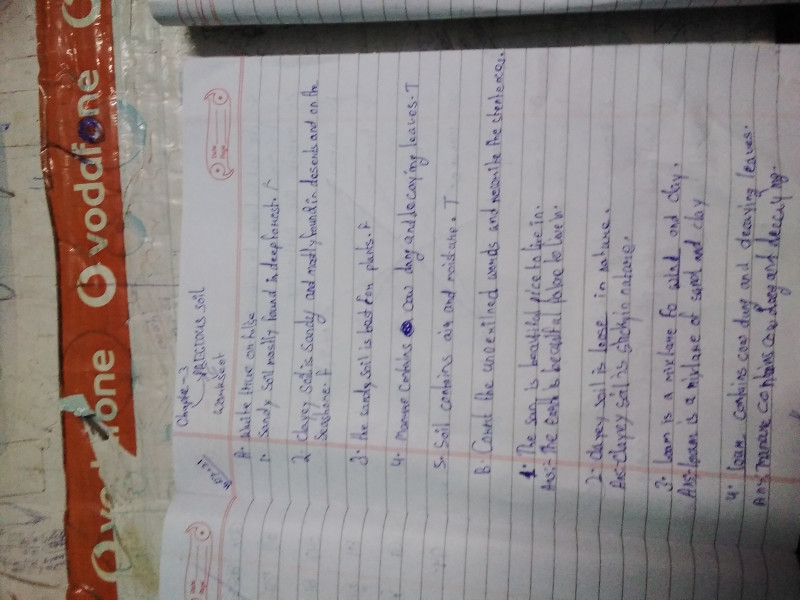 vodafone
voddfone
Chapte-3
Precious soil
Workseet
A. White true or false
1. Sandy soil mostly bound in deep forest. F
2. clayey soil is sandy and mostly bound in deserts and on the
Seashore. F
3. The sandy soil is best for plants. F
4. Manure contains cow dung and decaying leaves. T
5. Soil contains air and moisture. T
B. Corect the underlined words and rewrite the stentences.
1. The sun is beautiful plce to live in.
Ans:- The Earth is beautiful palce to live in.
2. Clayey soil is loose in nature.
Ans:- Clayey soil is sticky in nature.
3. Loam is a mixture fo wind and clay.
Ans:- Loam is a mixture of sand and clay
4. loam contains cow dung and decaying leaves.
Ans: manure contains cow dung and decaying.